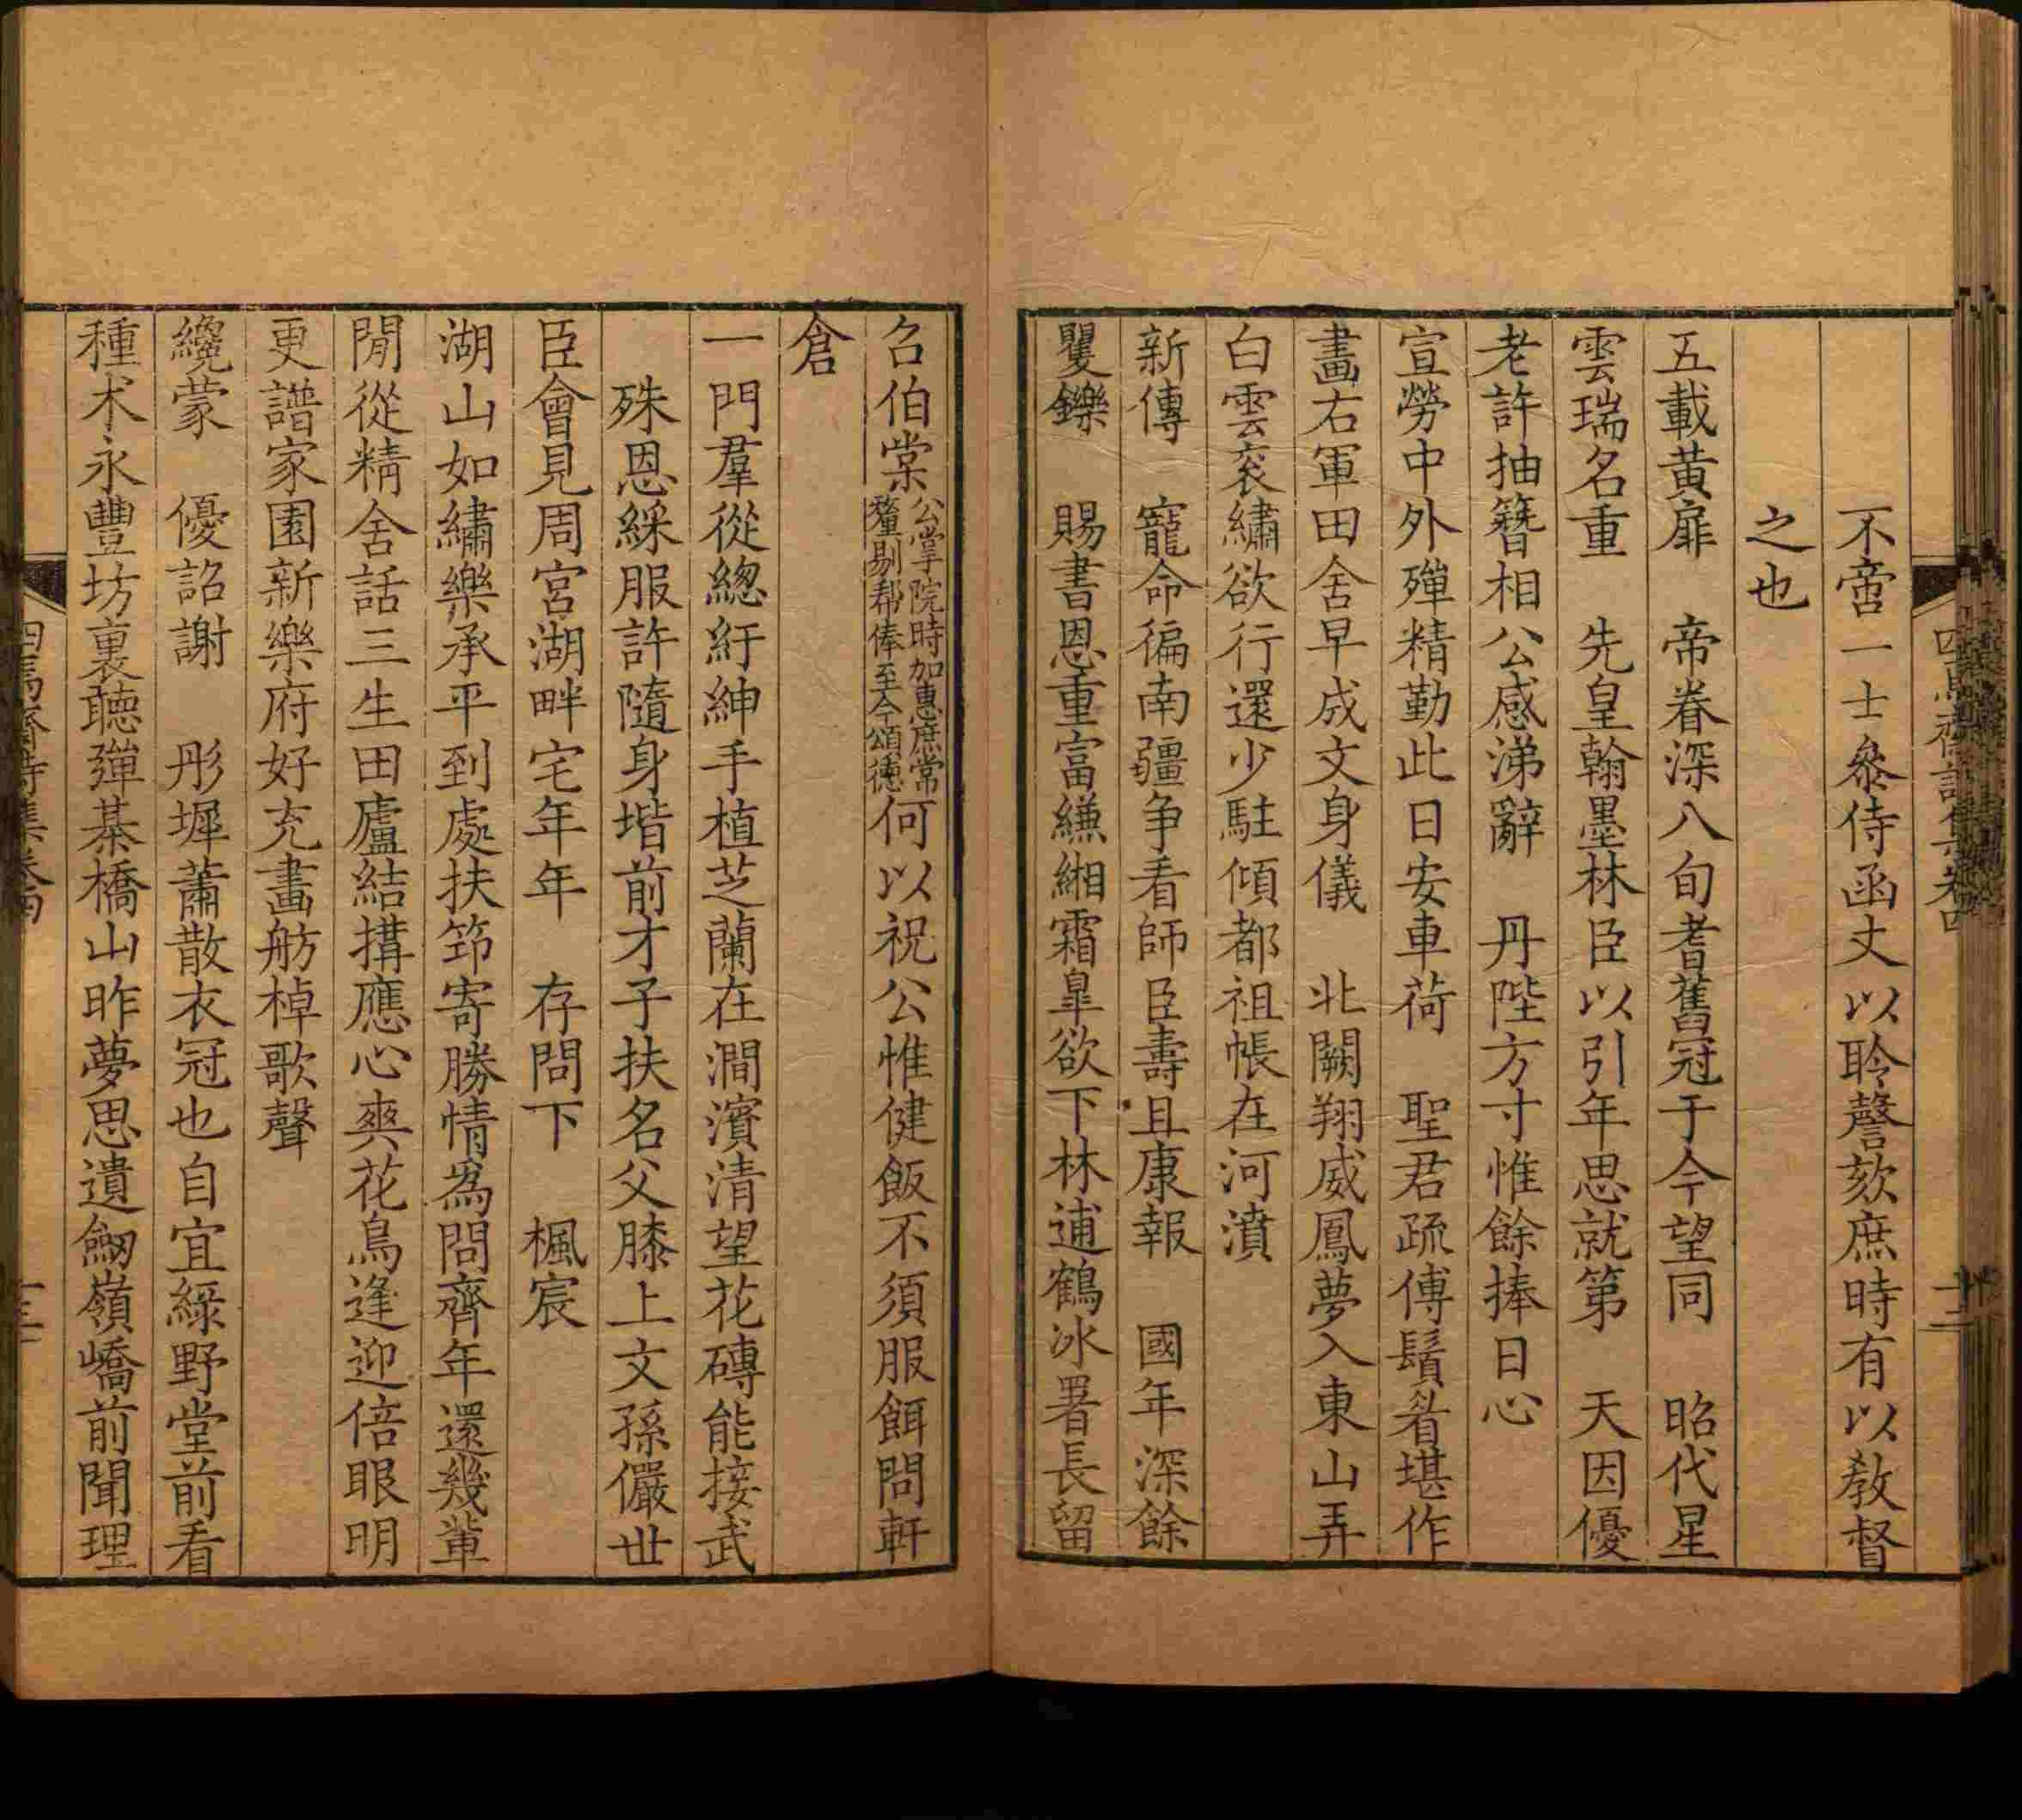 不啻一士叅侍函丈以聆謦欬庶時有以教督
之也
五載黃扉　帝眷深八旬耆舊冠于今望同　昭代星
雲瑞名重　先皇翰墨林臣以引年思就第　天因優
老許抽簪相公感涕辭　丹陛方寸惟餘捧日心
宣勞中外殫精勤此日安車荷　聖君疏傅鬚眉堪作
畫右軍田舍早成文身儀　北闕翔威鳳夢入東山弄
白雲衮繡欲行還少駐傾都祖帳在河濆
新傳　寵命徧南疆爭看師臣壽且康報　國年深餘
矍鑠　賜書恩重富縑緗霜皐欲下林逋鶴冰署長留
召伯棠公掌院時加惠庶常釐剔郡俸至今頌德何以祝公惟健飯不須服餌問軒
倉
一門羣從總紆紳手植芝蘭在澗濱清望花磚能接武
殊恩綵服許隨身堦前才子扶名父膝上文孫儼世
臣會見周宮湖畔宅年年　存問下　楓宸
湖山如繡樂承平到處扶筇寄勝情爲問齊年還幾輩
閒從精舍話三生田廬結搆應心爽花鳥逢迎倍眼明
更譜家園新樂府好充畫舫棹歌聲
纔蒙　優詔謝　彤墀蕭散衣冠也自宜綠野堂前看
種朮永豐坊裏聽彈棊橋山昨夢思遺劒嶺嶠前聞理